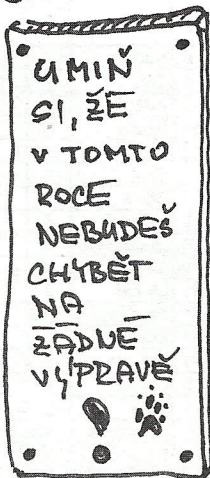 UMIŇ
SI, ŽE
V TOMTO
ROCE
NEBUDEŠ
CHYBĚT
NA
ŽÁDNÉ
VÝPRAVĚ
!